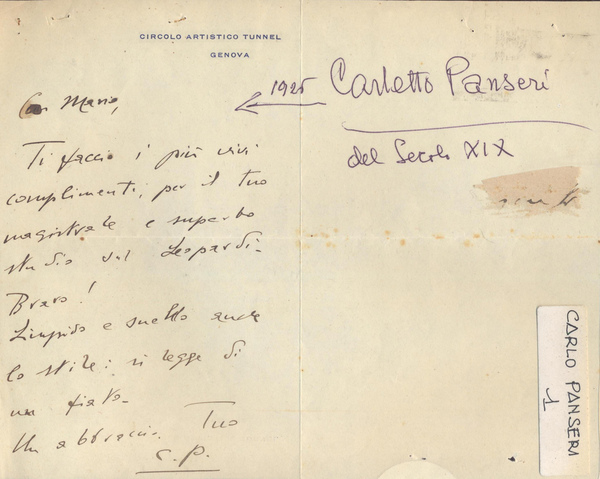 CIRCOLO ARTISTICO TUNNEL
GENOVA
Car Mario,
Ti faccio i più vivi
complimenti, per il tuo
magistrale e superbo
studio sul Leopardi.
Bravo!
Limpido e snello anche
lo stile: si legge di
un fiato.
Un abbraccio. Tuo
C.P.
1925 Carletto Panseri
del Secolo XIX
CARLO PANSERI
1